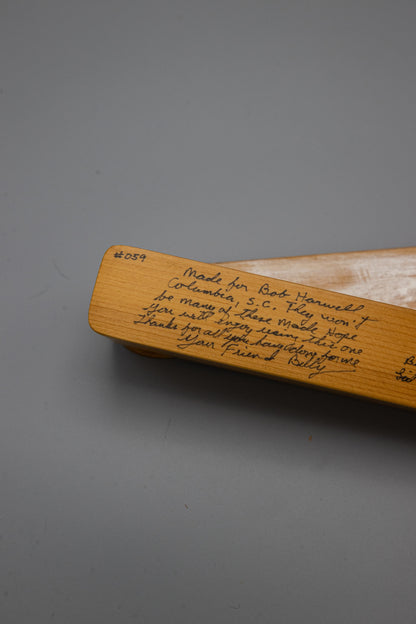 #059
Made for Bob Harwell
Columbia, S.C. They won't
be many of these made Hope
you will enjoy using this one
Thanks for all you have done for me
Your Friend Billy